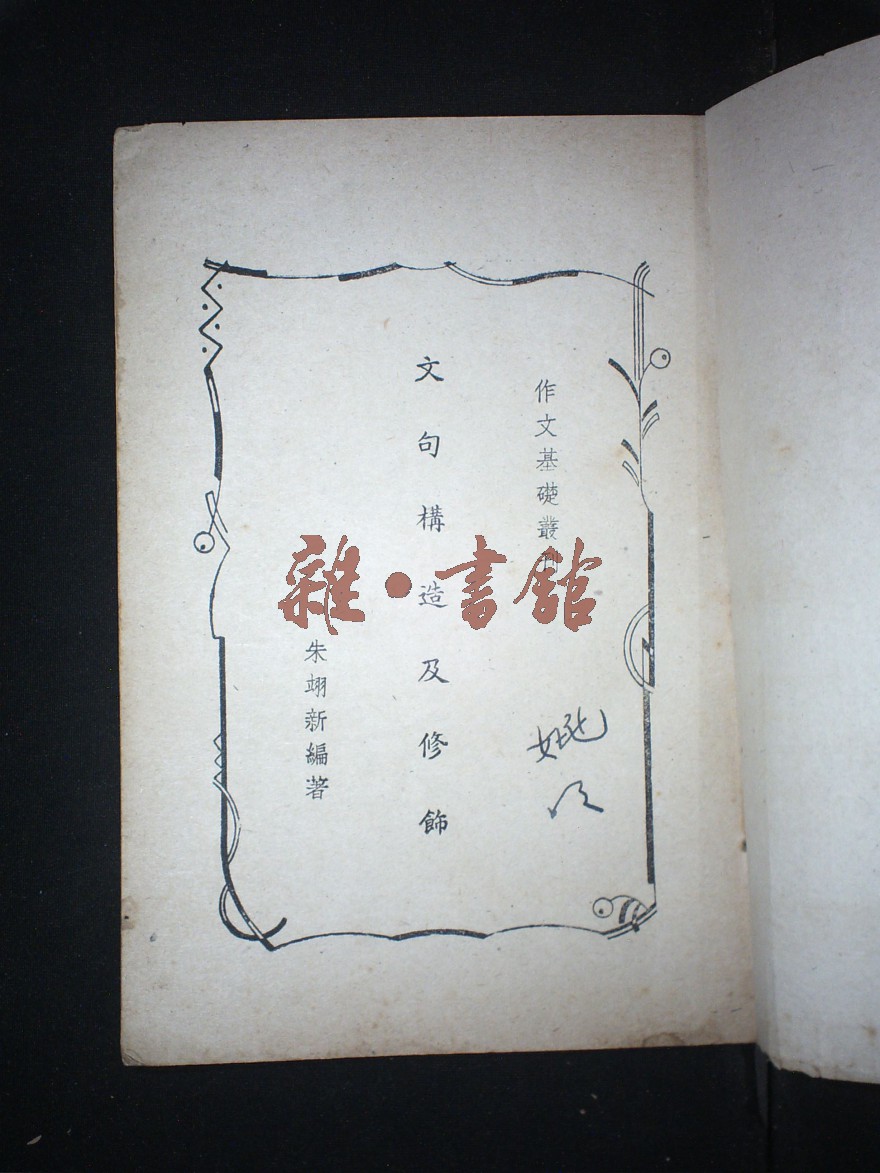 作文基礎叢刊
文句構造及修飾
朱翊新編著
雜·書館